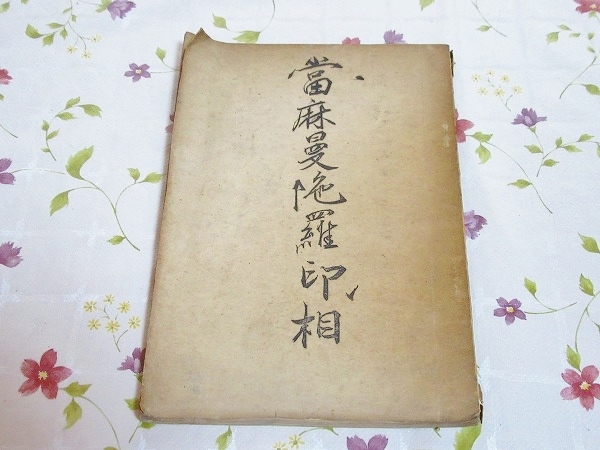 當麻曼陁羅印相